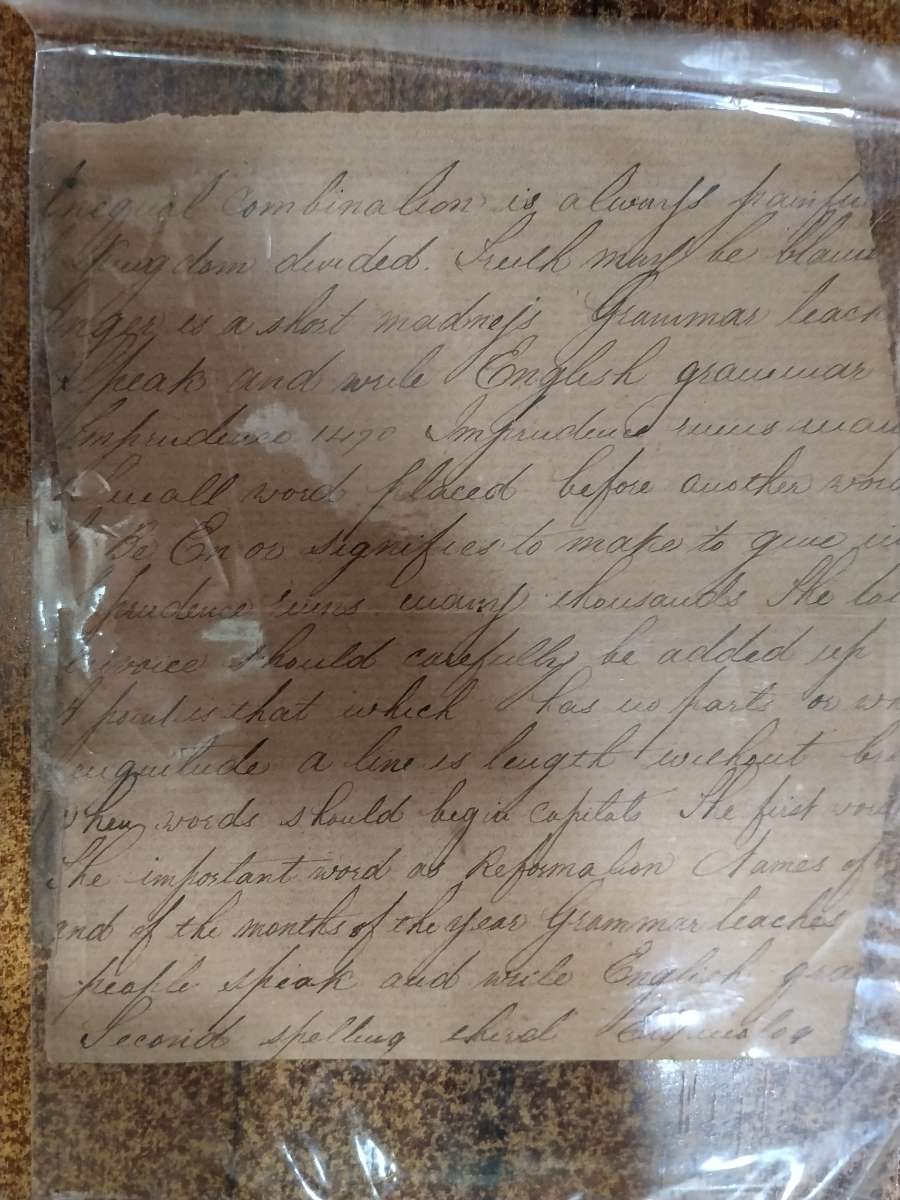 unequal Combination is always painful
Kingdom divided. Truth may be blam
Anger is a short madness Grammar teach
speak and write English grammar
Imprudence 1470 Imprudence ruins man
Small word placed before another word
Be En or signifies to make to give
prudence ruins many thousands The
invoice should carefully be added up
A point is that which has no parts or
magnitude a line is length without br
when words should begin Capitals The first word
The important word as Reformation Names of
and of the months of the year Grammar teaches
people speak and write English gra
Second spelling third Etymolog